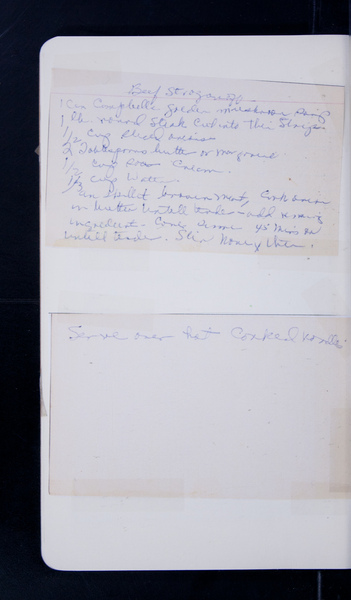 Beef Stroganoff
1 Can Campbells golden mushroom Soup
1 lb. round Steak Cut into Thin Strips
1/2 Cup Sliced onions
2 Tablespoons butter or margarine
1/2 Cup Sour Cream
1/3 Cup Water
in Skillet brown meat, Cook onion
in butter untill tender - add remaing
ingredients. Cover simmer 45 Mins or
untill tender. Stir Now & then.
Serve over hot Cooked noodles